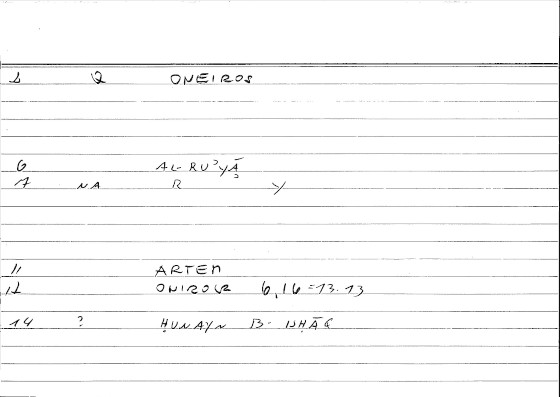 1 Q ONEIROS
6 AL-RUʾYĀ
7 NA R Y
11 ARTEM
12 ONIROCR 6,16=13.13
14 ? ḤUNAYN B- ISḤĀQ